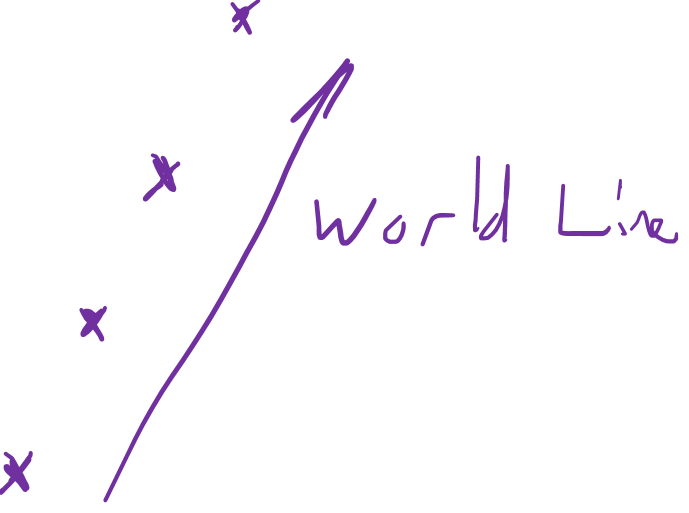 World Line